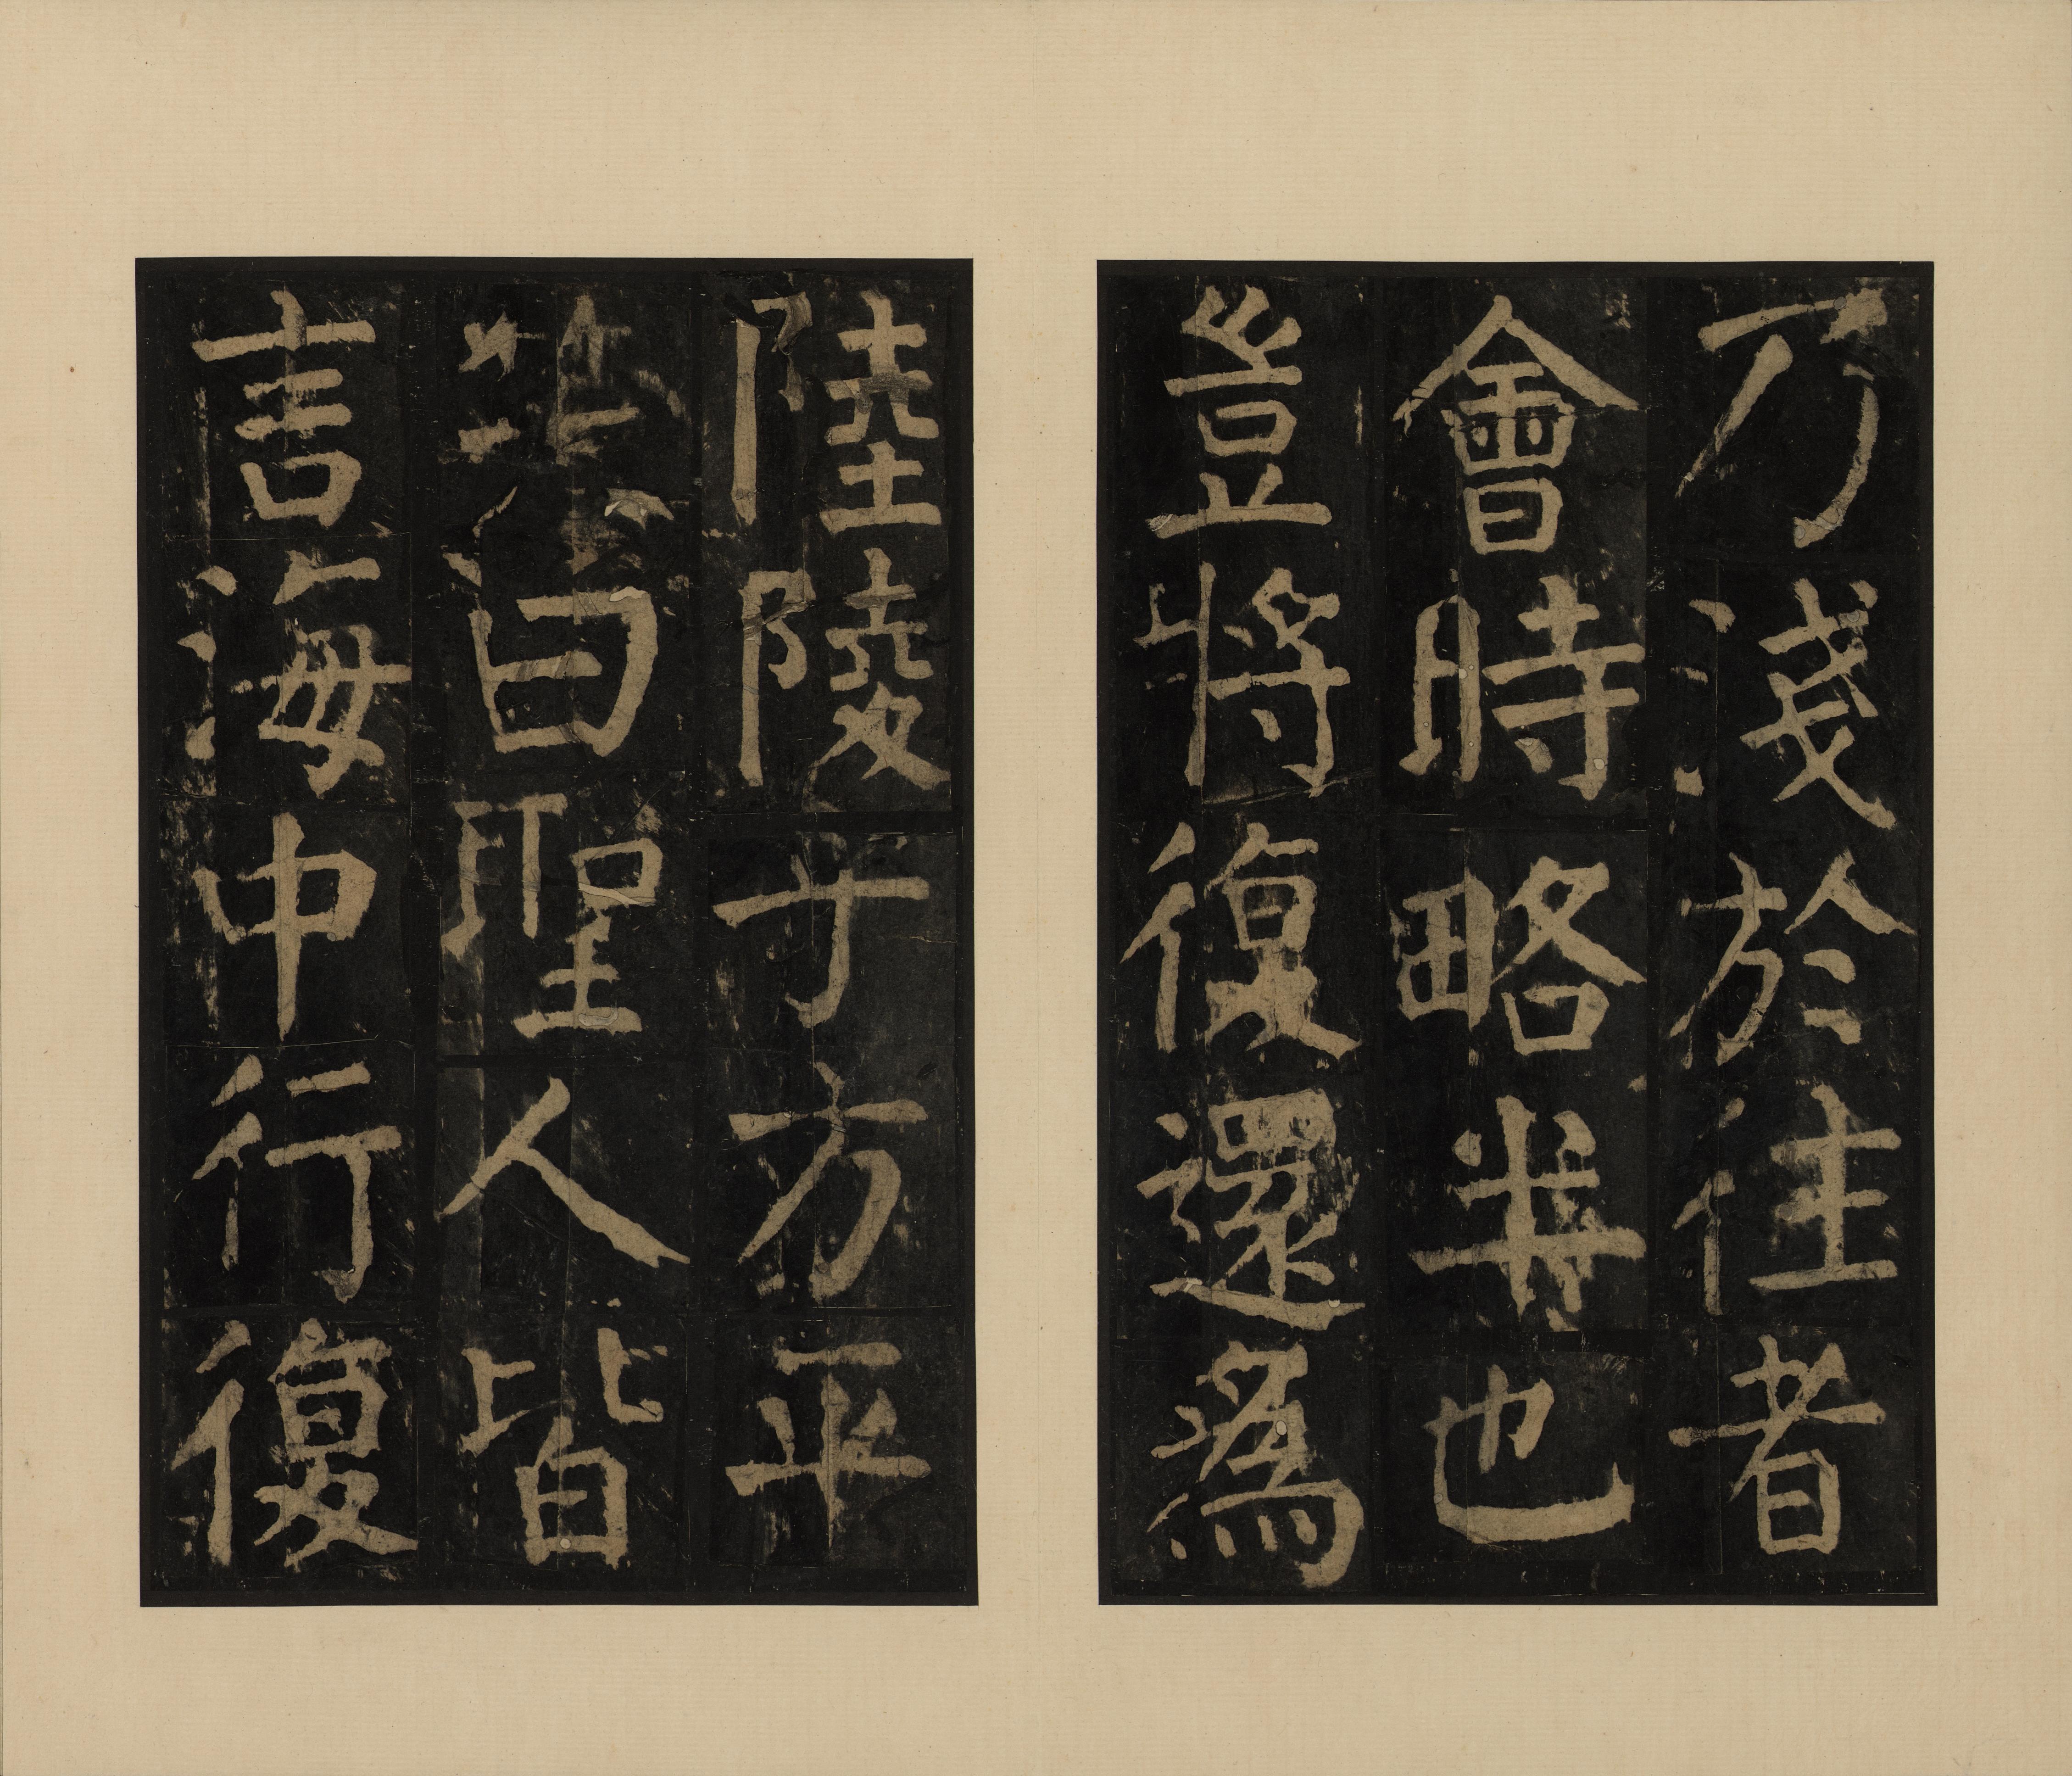 乃淺於往者
會時略半也
豈將復還爲
陸陵乎方平
曰聖人皆
言海中行復